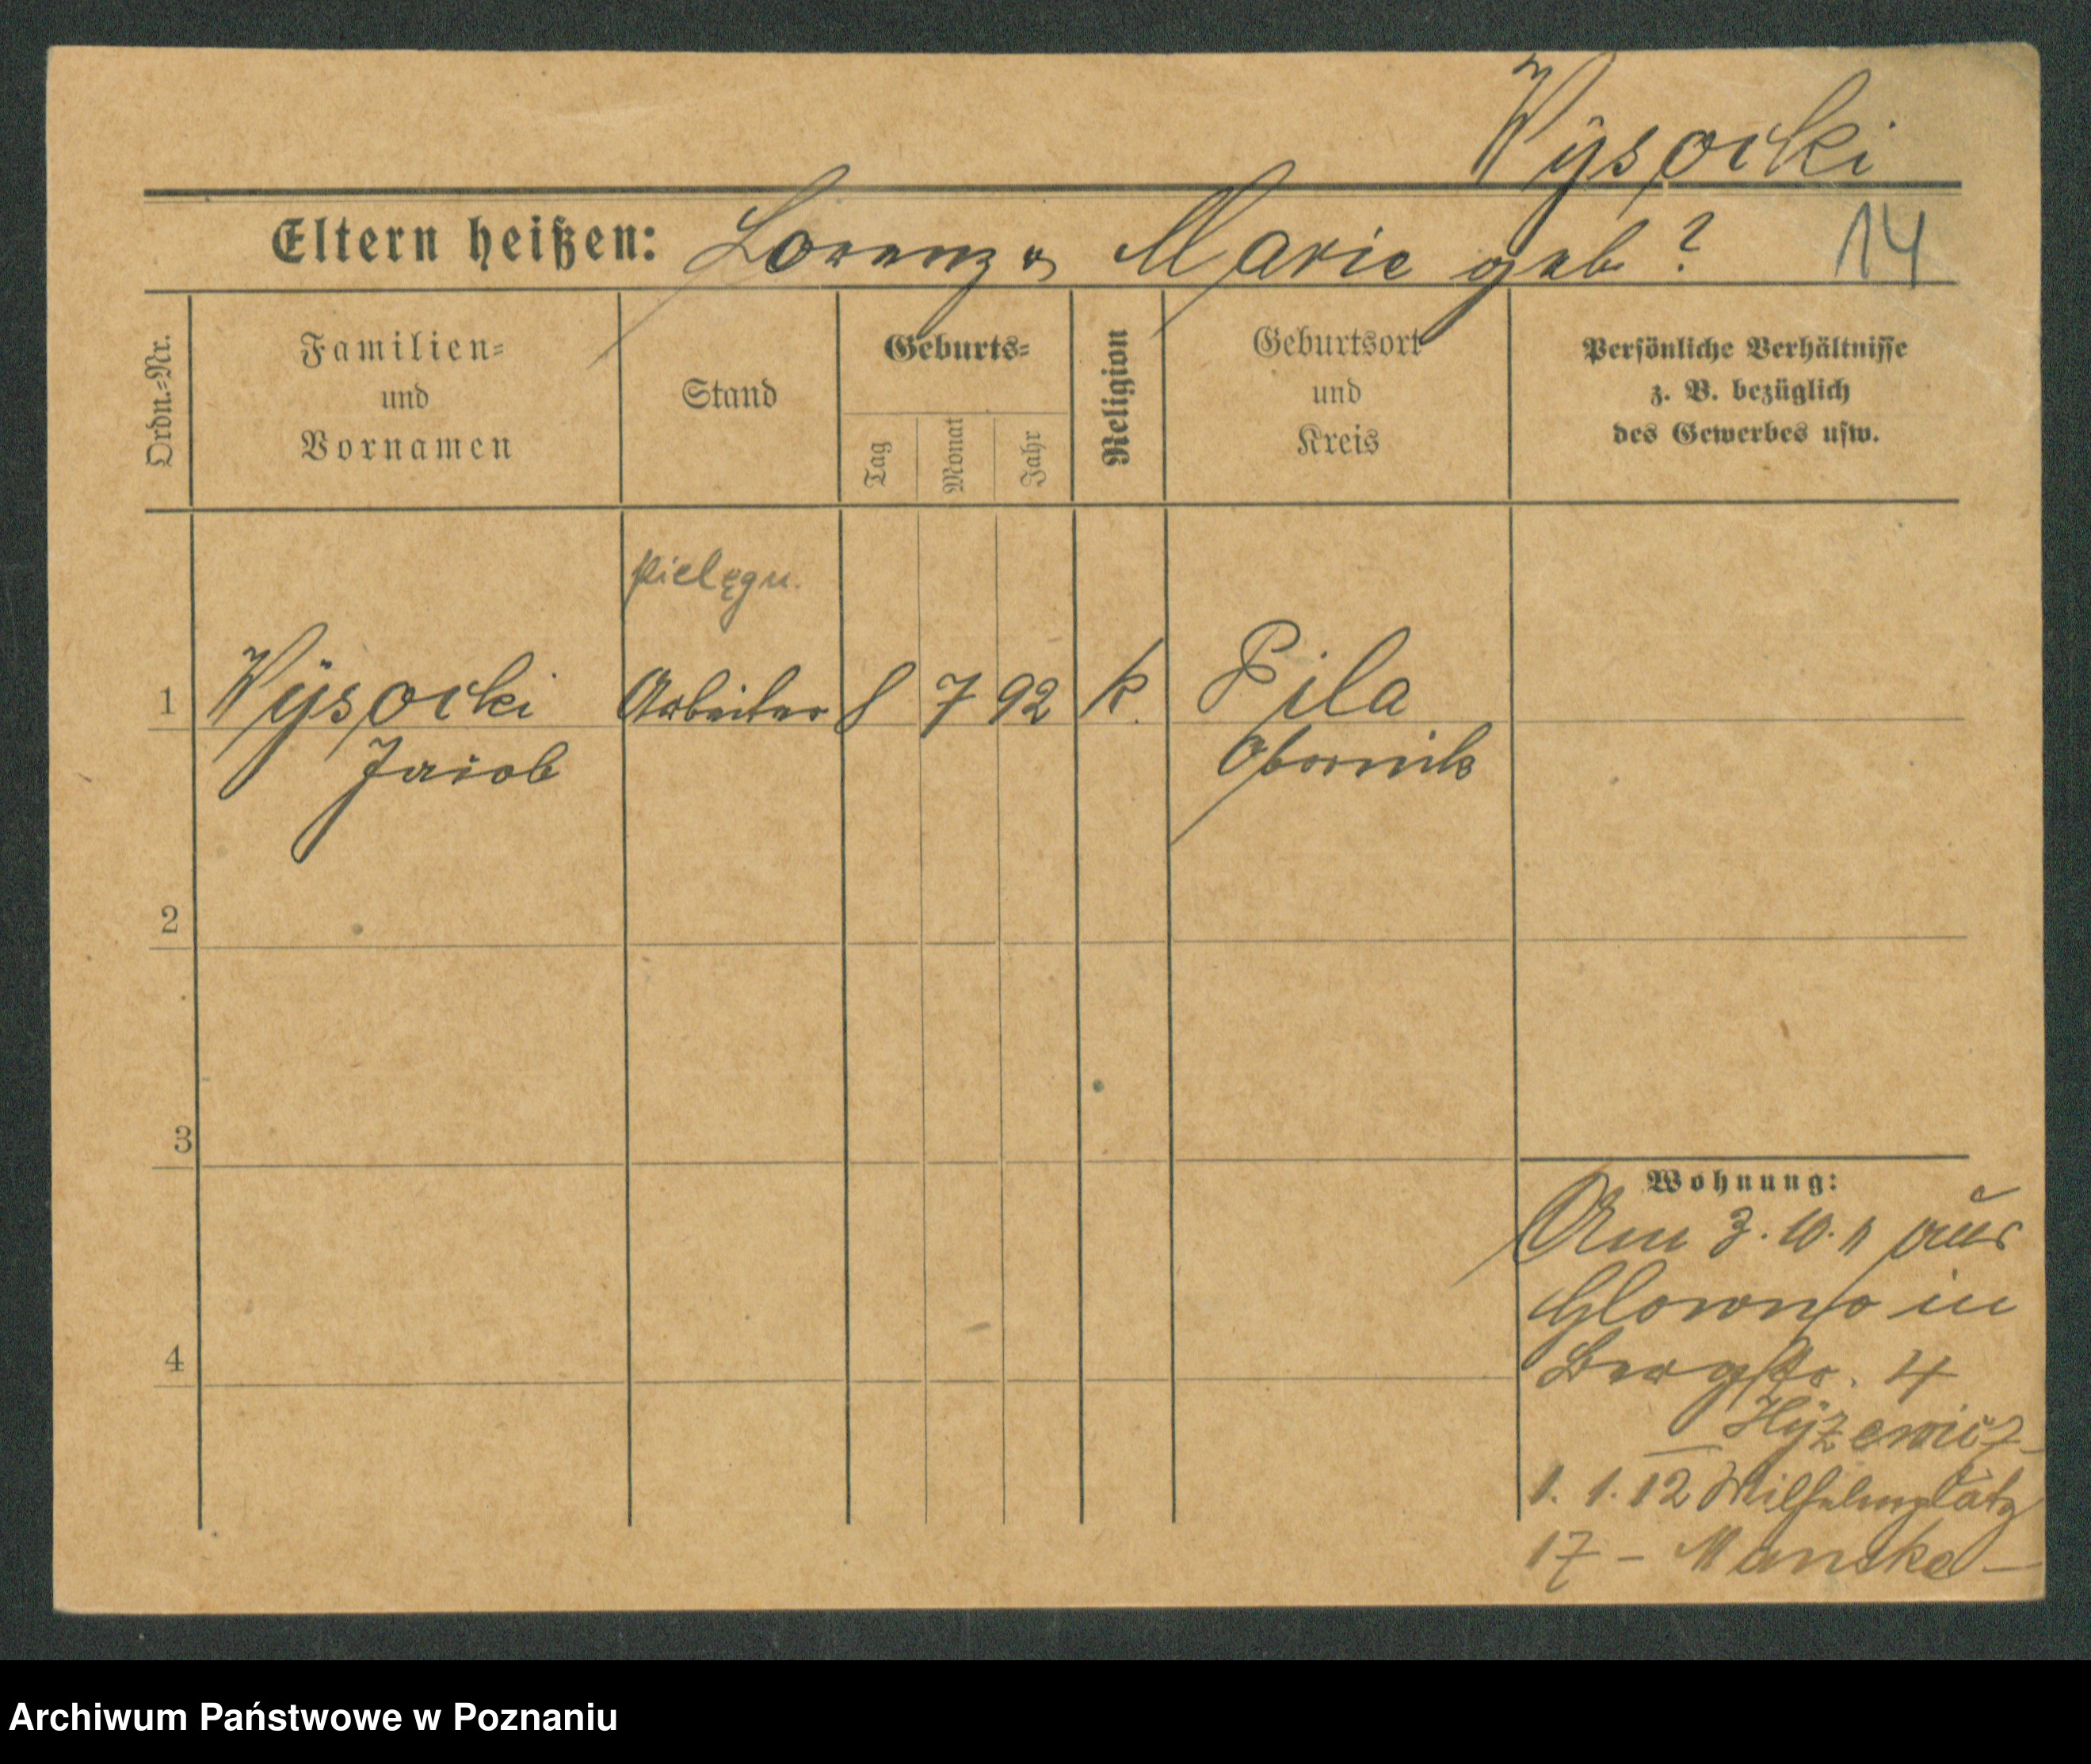 Wÿsocki
Eltern heißen: Lorenz u Marie geb ?
14
Ordn.=Nr.
Familien=
und
Vornamen
Stand
Geburts=
Tag
Monat
Jahr
Religion
Geburtsort
und
Kreis
Persönliche Verhältnisse
z. B. bezüglich
des Gewerbes usw.
pielęgn.
1 Wÿsocki Arbeiter 8 7 92 k. Pila
Jacob Obornik
2
3
4
Wohnung:
Am 3. 10. 11 aus
Glowno in
Bergstr. 4
Hÿzewicz
1. 1. 12 Wilhelmplatz
17 - Manske -
Archiwum Państwowe w Poznaniu